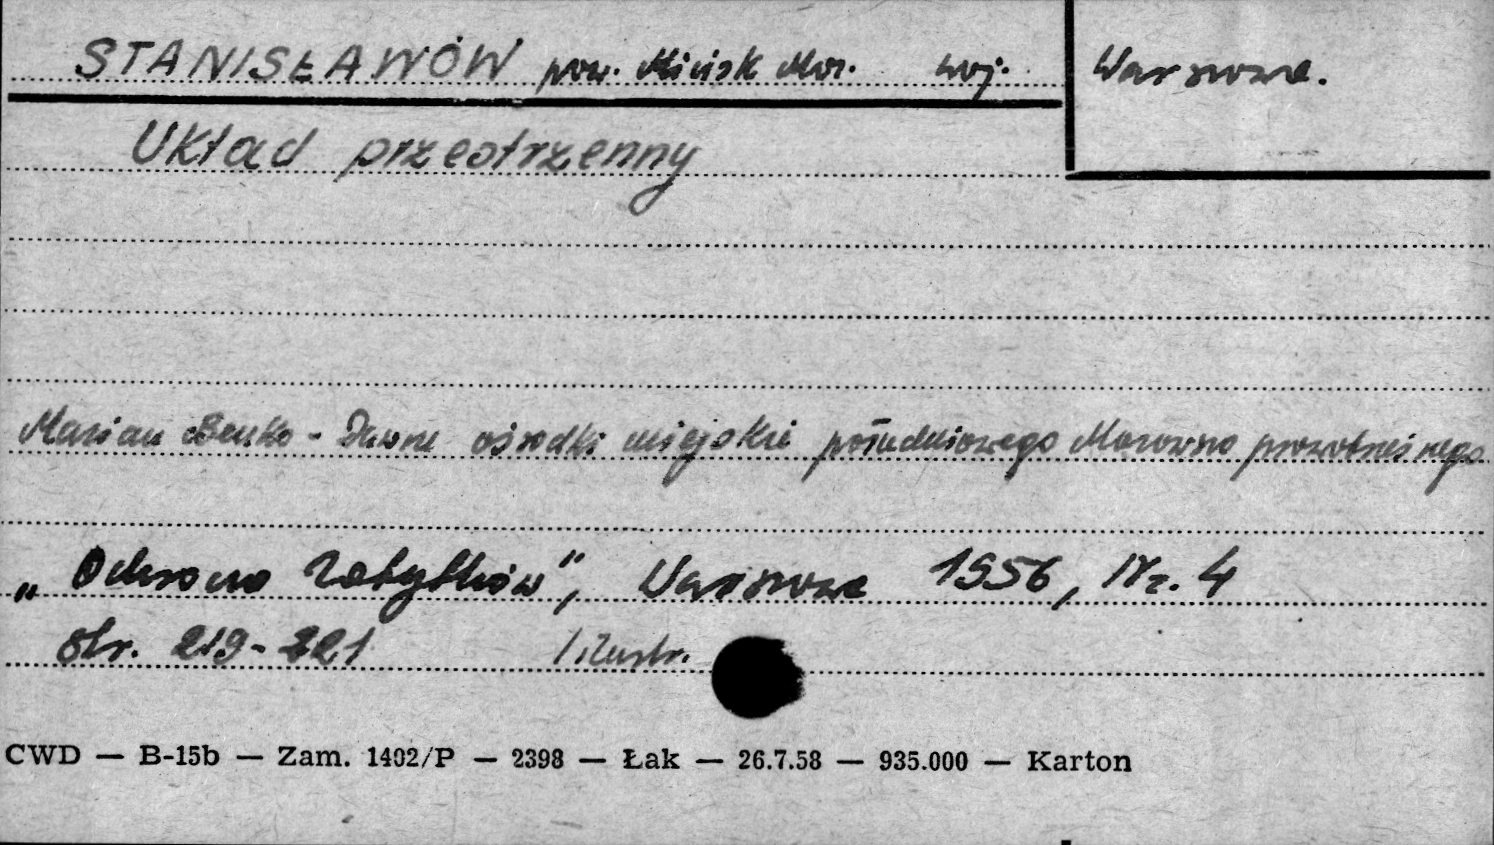 STANISŁAWÓW pow. Mińsk Maz. woj. Warszawa.
Układ przestrzenny
Marian Benko - Dawne ośrodki miejskie południowego Mazowsza prawobrzeżnego
„Ochrona Zabytków", Warszawa 1956, Nr. 4
str. 219-221 Ilustr.
CWD — B-15b — Zam. 1402/P — 2398 — Łak — 26.7.58 — 935.000 — Karton